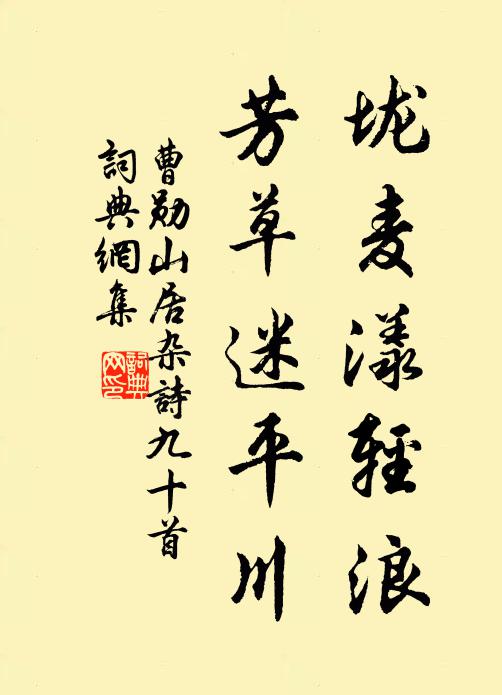 垅麦漾輕浪
芳草迷平川
曹勋山居杂詩九十首
詞典網集
詞典网印